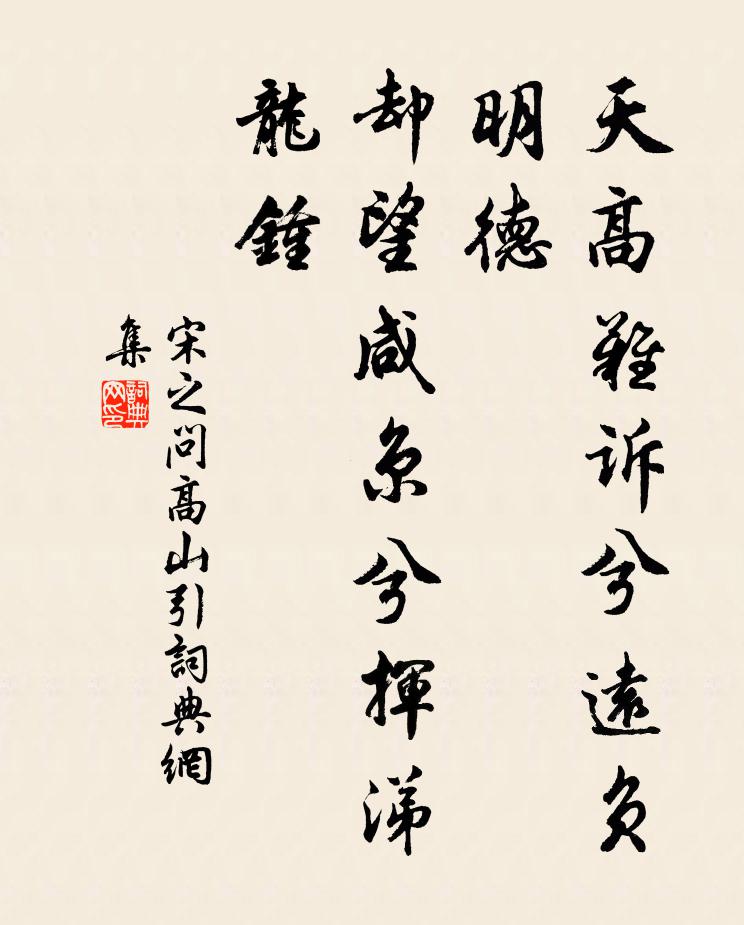 天高難訴兮遠負
明德
却望咸京兮揮涕
龍鍾
宋之問高山引詞典網
集
詞典
网印